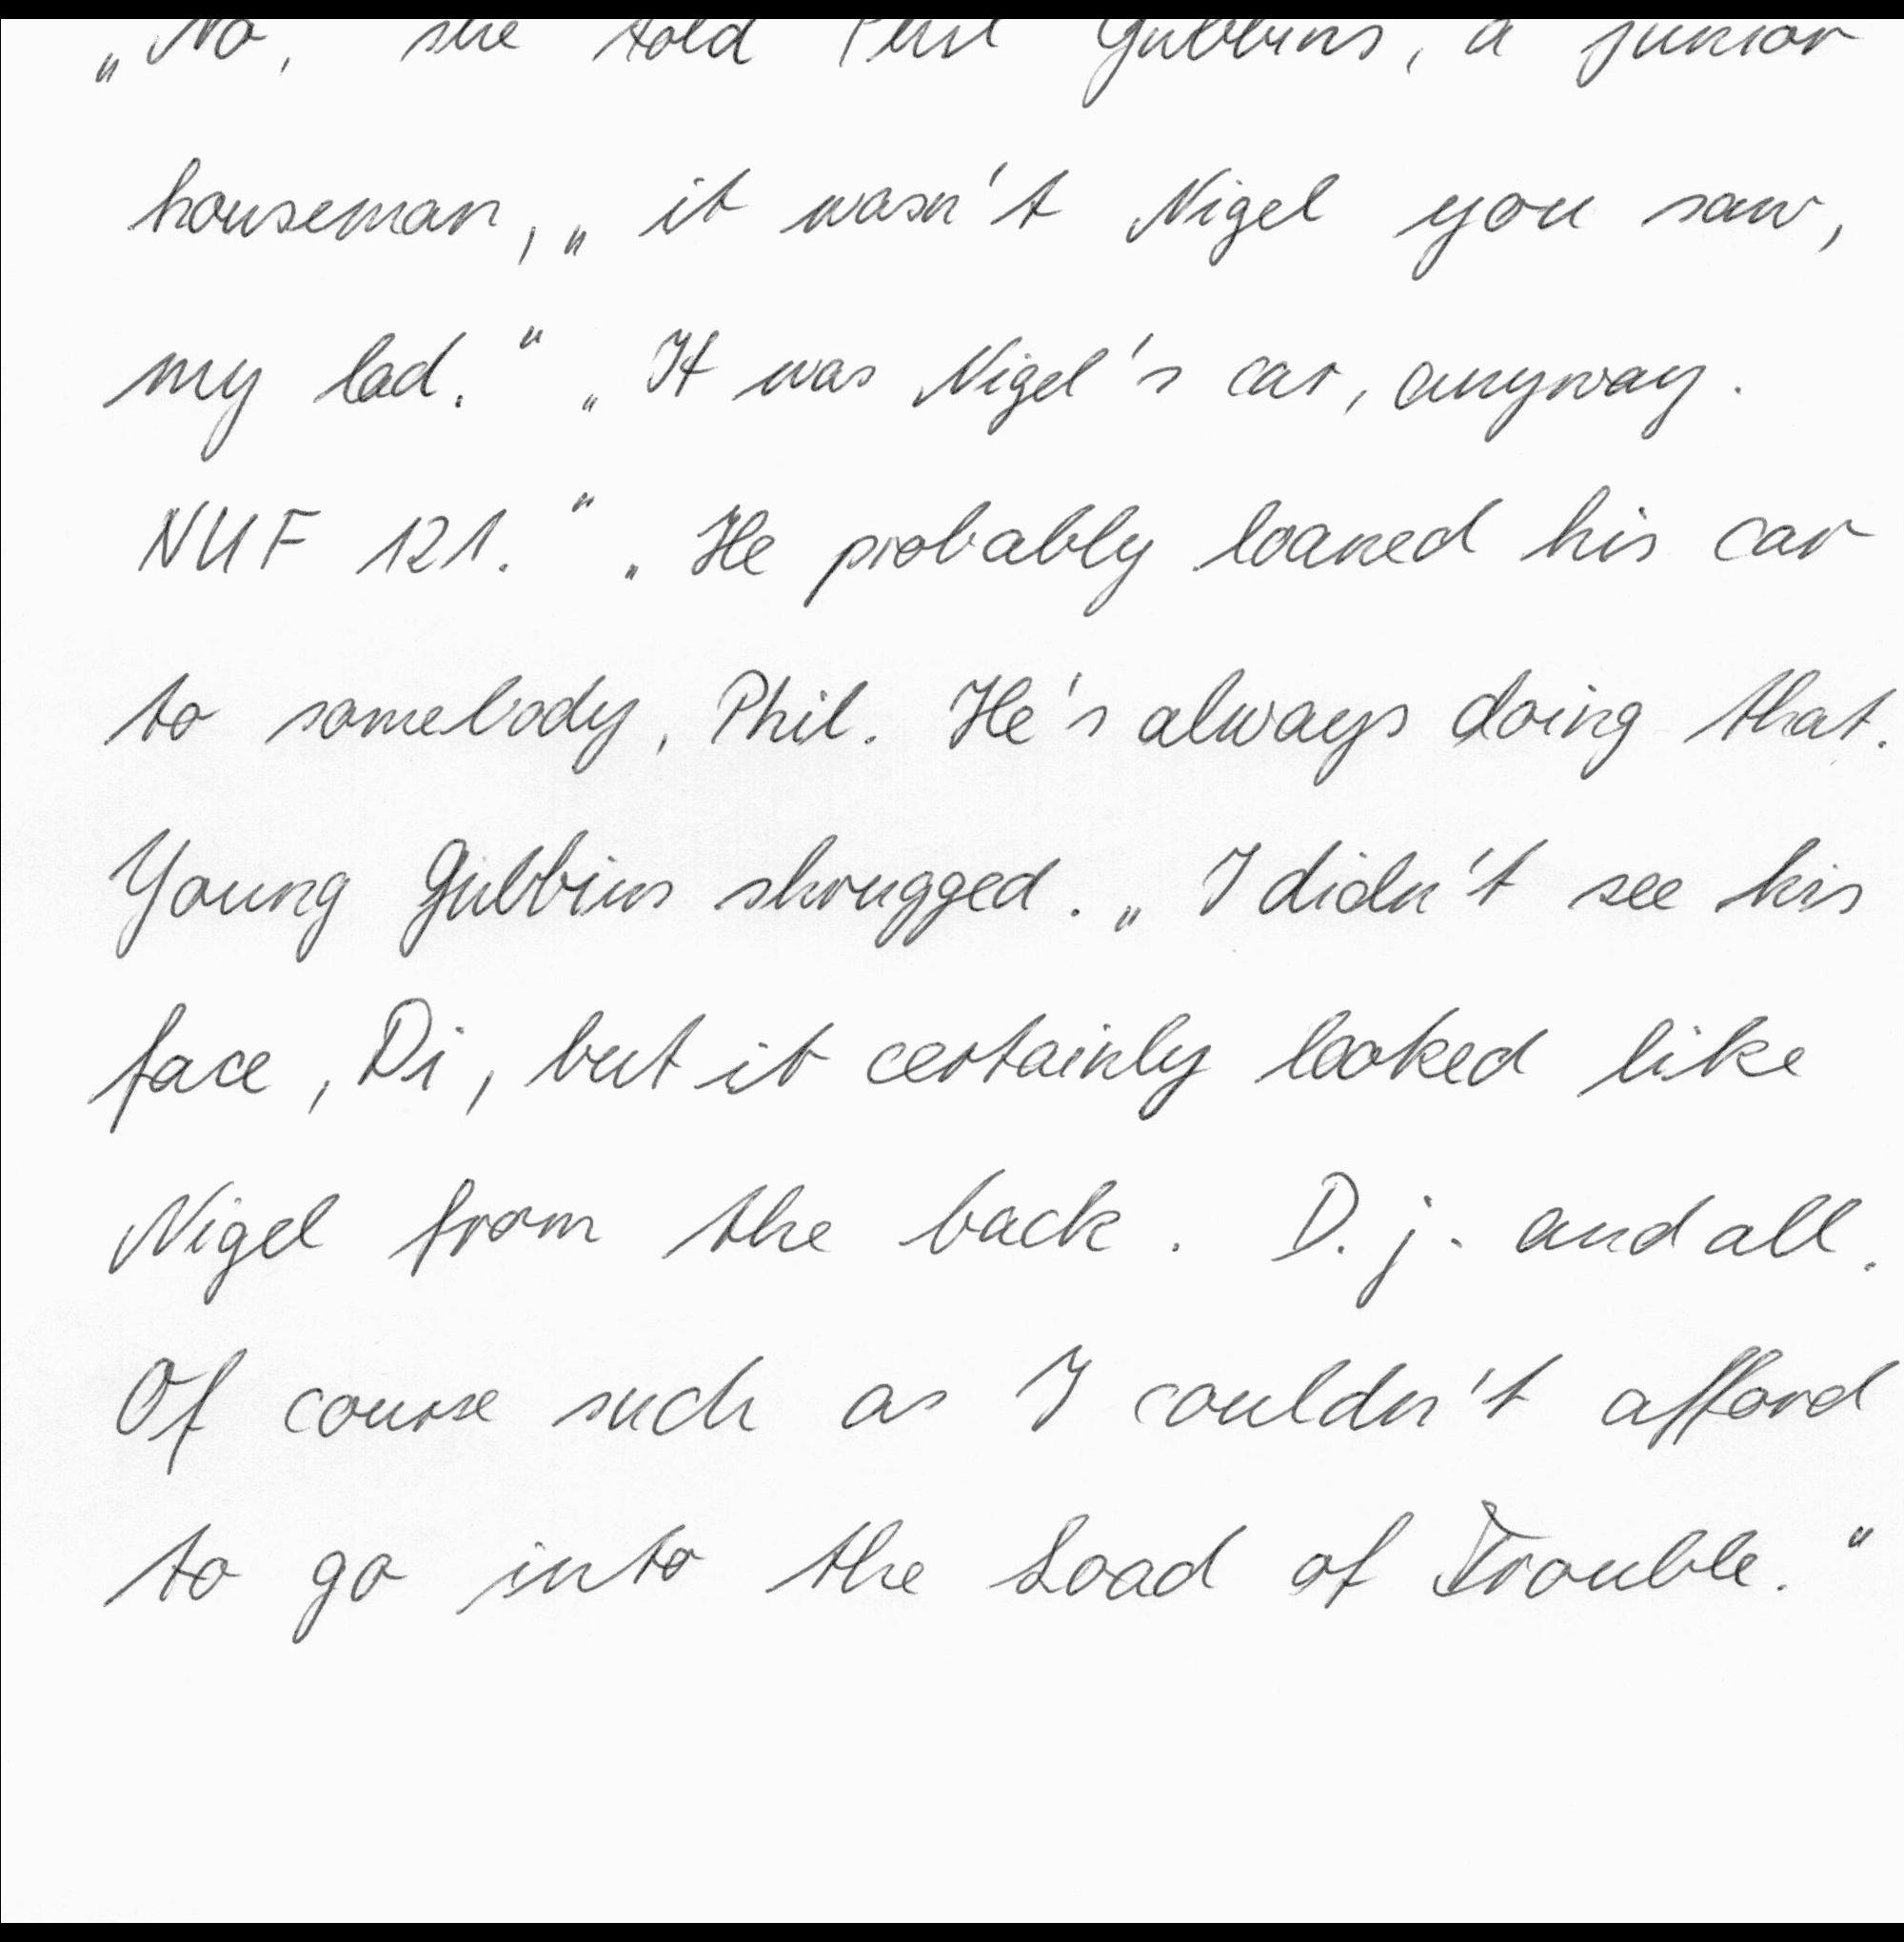 „No, she told Phil Gubbins, a junior
houseman, „ it wasn't Nigel you saw,
my lad." „It was Nigel's car, anyway.
NUF 121." „He probably loaned his car
to somebody, Phil. He's always doing that.
Young Gubbins shrugged. „I didn't see his
face, Di, but it certainly looked like
Nigel from the back. D. j. and all.
Of course such as I couldn't afford
to go into the Load of Trouble."